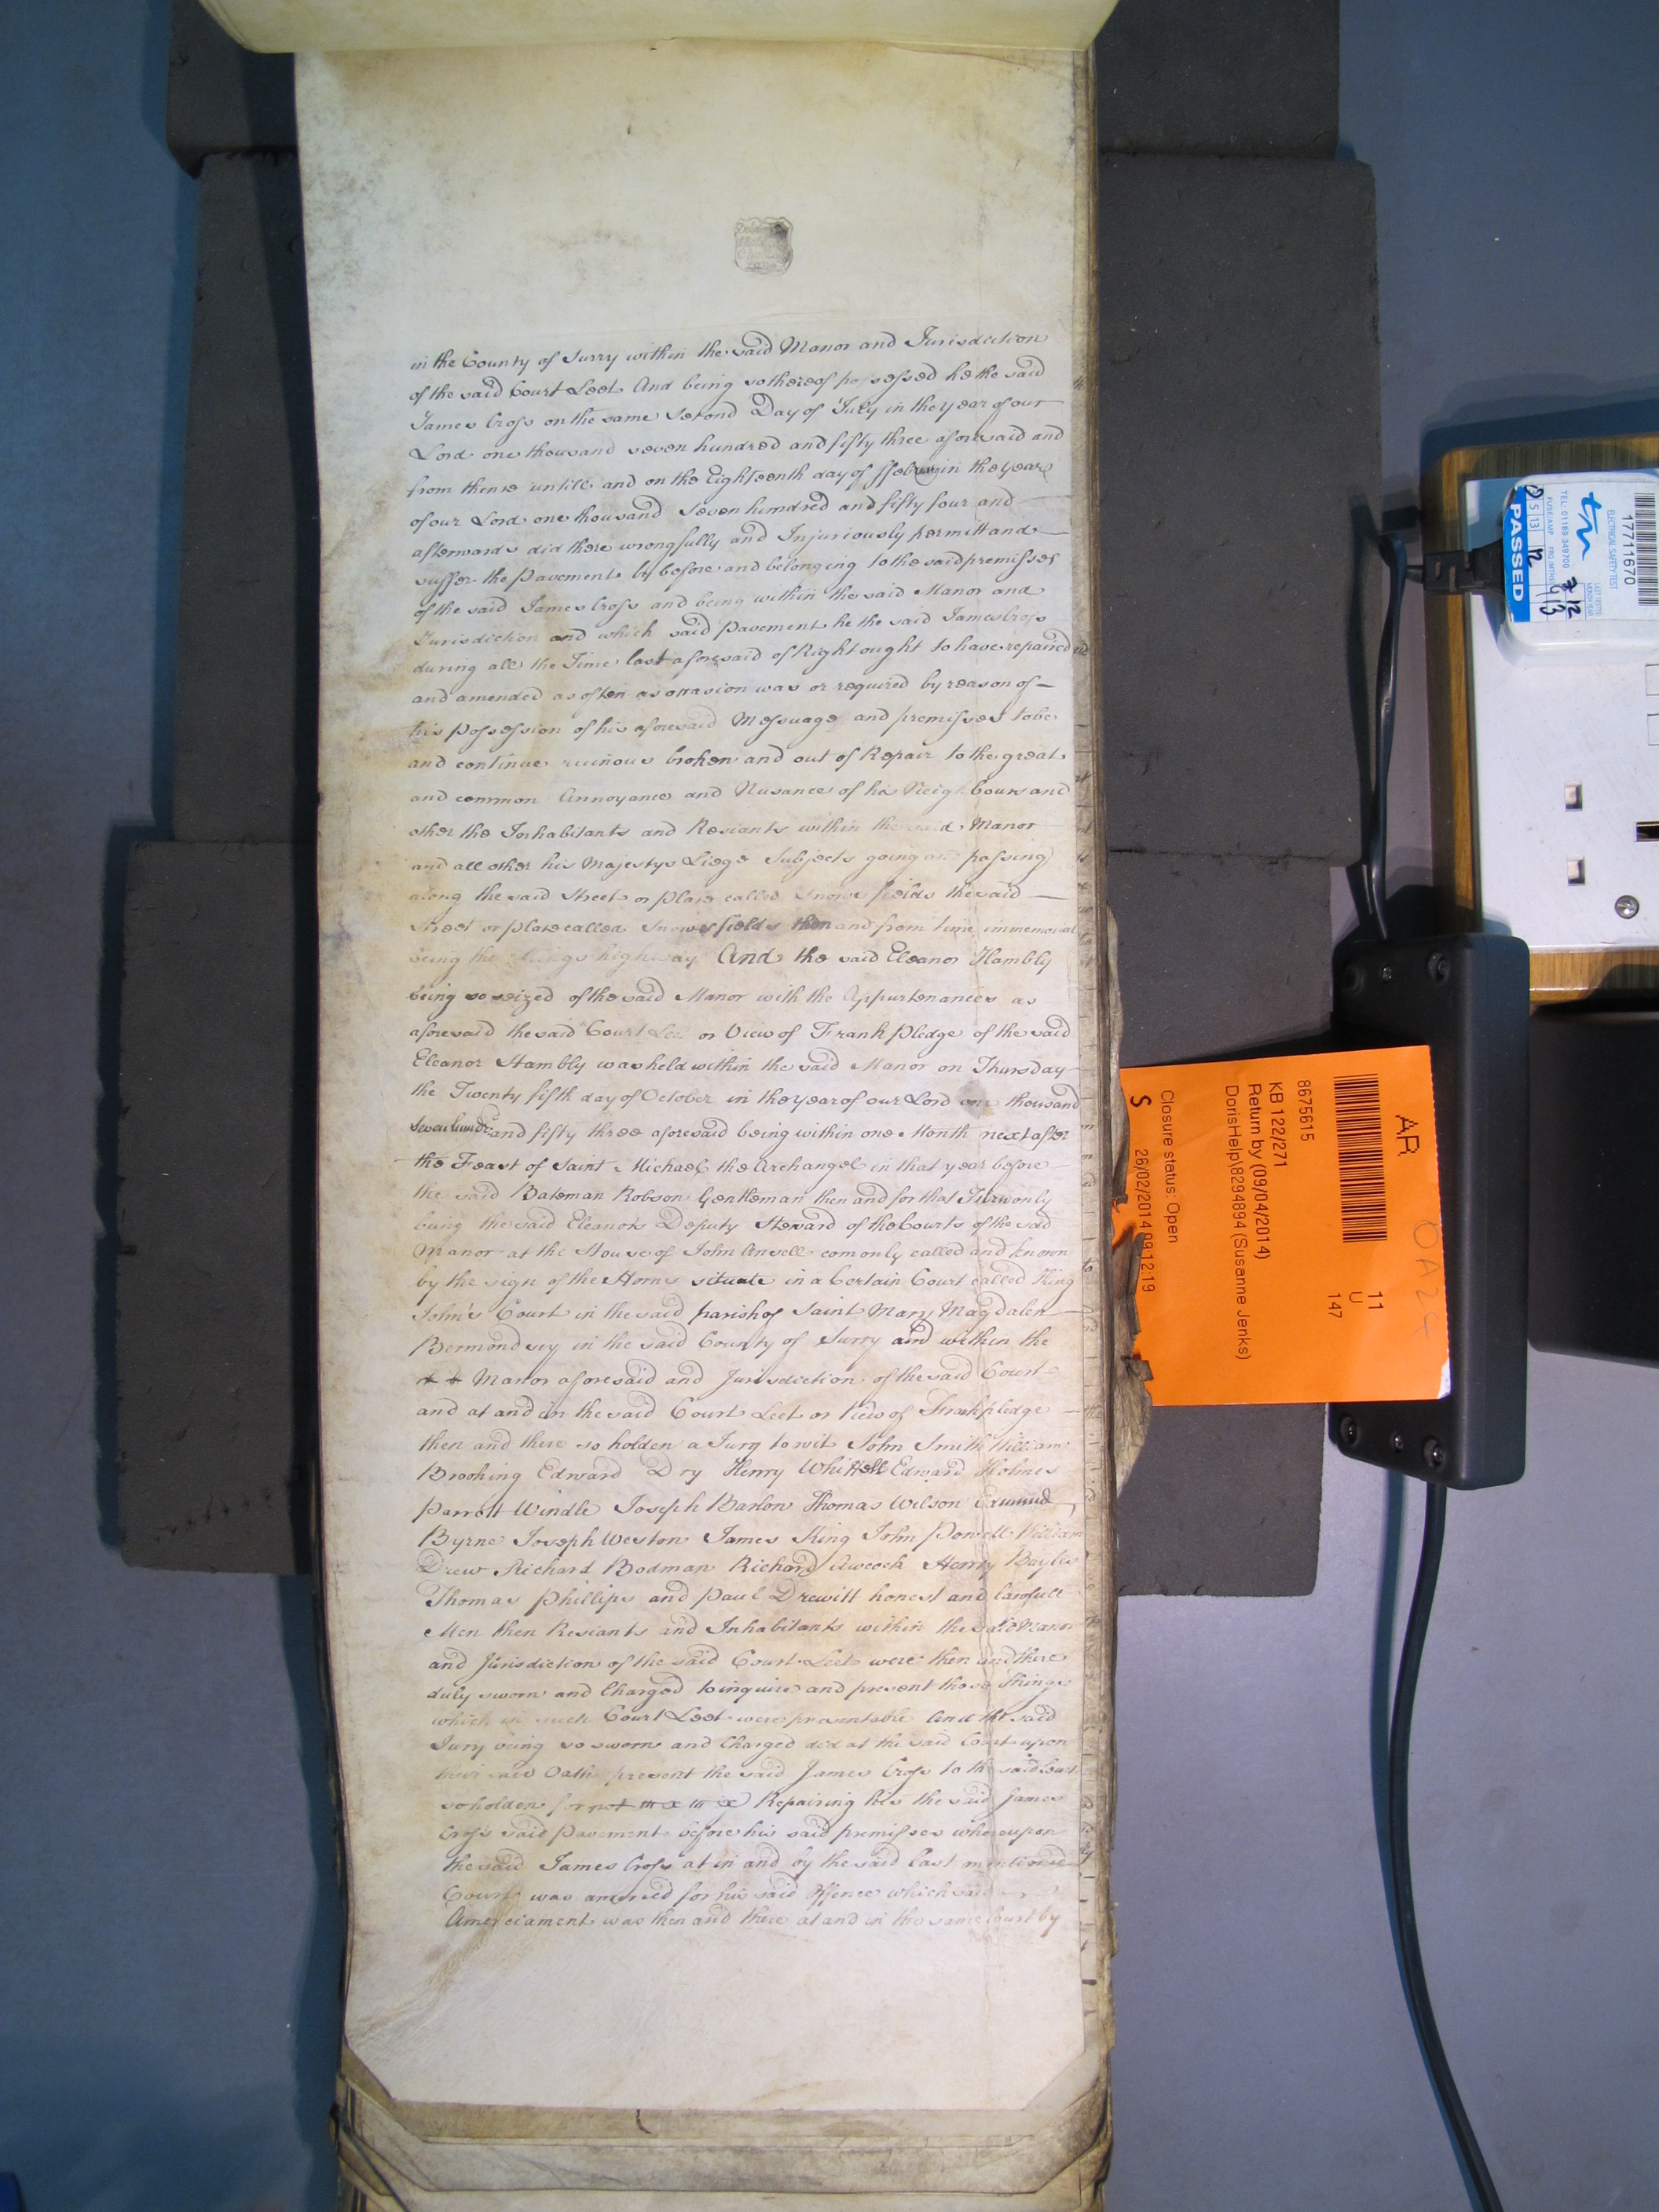 in the County of Surry within the said Manor and Jurisdiction
of the said Court Leet And being so thereof possessed he the said
James Cross on the same Second Day of July in the year of our
Lord one thousand seven hundred and fifty three aforesaid and
from thence untill and on the Eighteenth day of ffebruary in the year
of our Lord one thousand Seven hundred and fifty four and
afterwards did there wrongfully and Injuriously permitt and
suffer the pavement by before and belonging to the said premisses
of the said James Cross and being within the said Manor and
Jurisdiction and which said pavement he the said James Cross
during all the Time last aforesaid of Right ought to have repaired
and amended as often as occasion was or required by reason of
his possession of his aforesaid Messuage and premisses to be
and continue ruinous broken and out of Repair to the great
and common Annoyance and Nusance of his Neighbours and
other the Inhabitants and Resiants within the said Manor
and all other his Majestys Liege Subjects going and passing
along the said Street or place called Snows fields the said
street or place called Snows fields then and from time immemorial
being the Kings highway And the said Eleanor Hambly
being so seized of the said Manor with the Appurtenances as
aforesaid the said Court Leet or View of Frank pledge of the said
Eleanor Hambly was held within the said Manor on Thursday
the Twenty fifth day of October in the year of our Lord one thousand
seven hundr and fifty three aforesaid being within one Month next after
the Feast of Saint Michael the Archangel in that year before
the said Bateman Robson Gentleman then and for that Turn only
being the said Eleanors Deputy Steward of the Courts of the said
Manor at the House of John Ansell comonly called and known
by the sign of the Horns situate in a Certain Court called King
John's Court in the said parish of Saint Mary Magdalen
Bermondsey in the said County of Surry and within the
Manor aforesaid and Jurisdiction of the said Court
and at and in the said Court Leet or View of Frankpledge
then and there so holden a Jury to wit John Smith William
Brooking Edward Dry Henry Whittell Edward Holmes
Parrott Windle Joseph Barlow Thomas Wilson Edmund
Byrne Joseph Weston James King John Powell William
Drew Richard Bodman Richard Awcock Henry Bayles
Thomas Phillips and Paul Drewitt honest and lawfull
Men then Resiants and Inhabitants within the said Manor
and Jurisdiction of the said Court Leet were then and there
duly sworn and Charged to inquire and present those Things
which in such Court Leet were presentable And the said
Jury being so sworn and Charged did at the said Court upon
their said Oath present the said James Cross to the said Court
so holden for not Repairing his the said James
Cross's said Pavement before his said premisses whereupon
the said James Cross at in and by the said last mentioned
Court was amerced for his said Offence which said
Amerciament was then and there at and in the same Court by
AR
11
U
147
8675615
KB 122/271
Return by (09/04/2014)
DorisHelp\8294894 (Susanne Jenks)
Closure status: Open
S
26/02/2014 09:12:19
17711670
ELECTRICAL SAFETY TEST
TEL: 01189 349700
PASSED